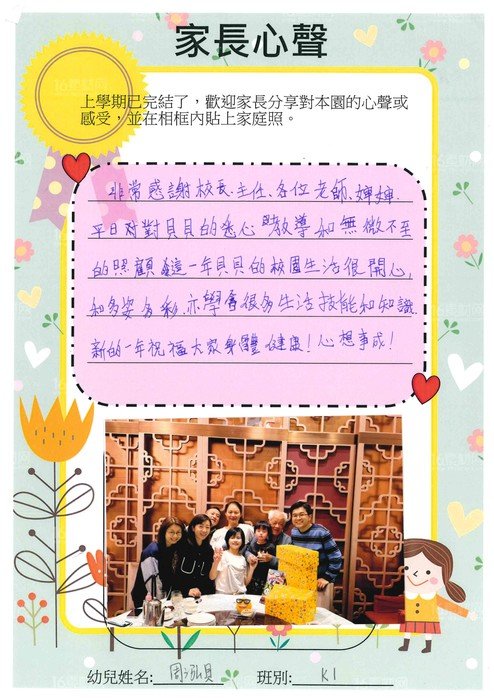 家長心聲
上學期已完結了，歡迎家長分享對本園的心聲或
感受，並在相框內貼上家庭照。
非常感謝校長、主任、各位老師、嬸嬸
平日對貝貝的悉心教導和無微不至
的照顧，這一年貝貝的校園生活很開心，
和多姿多彩，亦學會很多生活技能和知識
新的一年祝福大家身體健康！心想事成！
幼兒姓名: 周泓貝 班別: K1